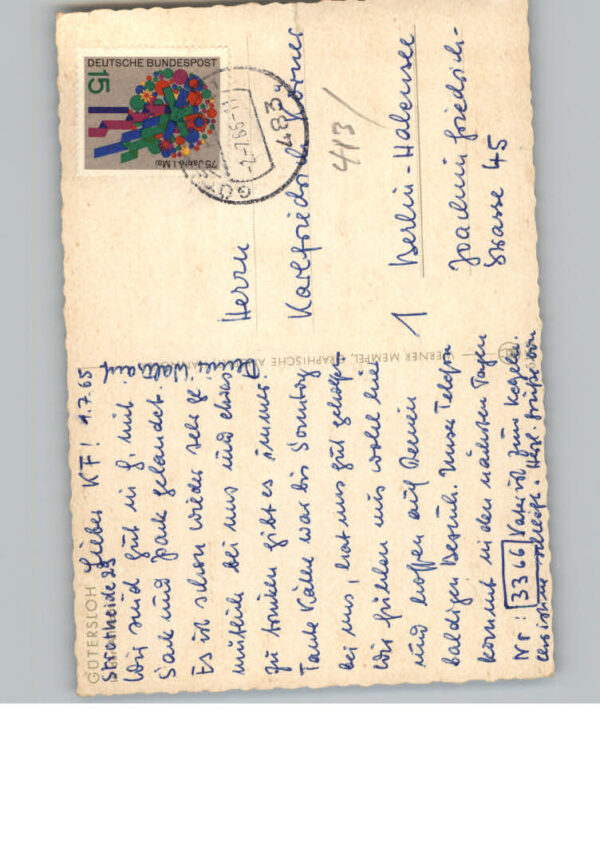 GÜTERSLOH
Stratheide 28
Lieber KF! 1.7.65
Wir sind gut in G. mit
Sack und Pack gelandet.
Es ist schon wieder sehr ge-
mütlich bei uns und etwas
zu trinken gibt es immer
Tante Käthe war bis Sonntag
bei uns, hat uns gut gehegt
Wir fühlen uns wohl hier
und hoffen auf Deinen
baldigen Besuch. Unser Telefon
kommt in den nächsten Tagen
Nr! 3366 Vater ist zum Kegeln.
Herzl. Grüße von
WERNER MEMPEL, GRAPHISCHE
DEUTSCHE BUNDESPOST
15
75 Jahre 1. Mai
483
-2.7.65-11
GÜTERSLOH
413/
Herrn
Karlfriedrich Körner
1 Berlin-Halensee
Joachim Friedrich-
Strasse 45